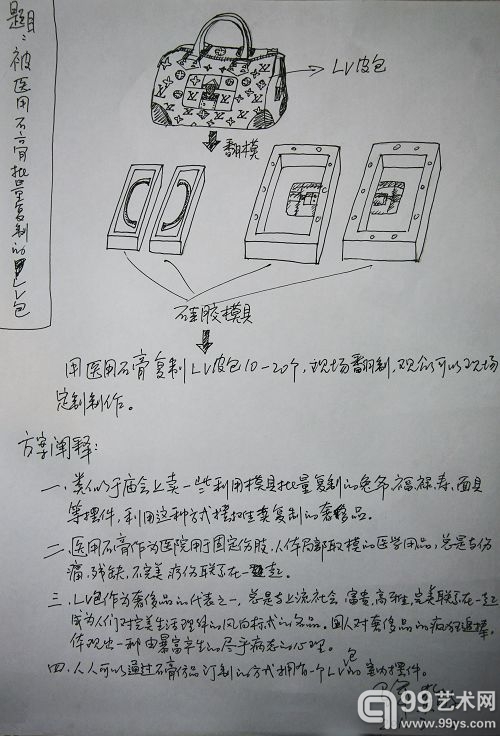 题目：被医用石膏批量复制的LV包
LV皮包
翻模
硅胶模具
用医用石膏复制LV皮包10-20个，现场翻制，观众可以现场
定制制作。
方案阐释：
一.类似于庙会上卖一些利用模具批量复制的 福禄寿、面具
等摆件，利用这种方式 复制的奢侈品。
二.医用石膏作为医院用于固定伤肢、人体局部取模的医学用品，总是与伤
痛、残缺、不完美 联系在一起。
三.LV包作为奢侈品的代表之一，总是与上流社会、富贵、高 、完美联系在一起
成为人们对完美生活理解的风向标式的名品。国人对奢侈品的疯狂追捧，
体现出一种由暴富产生的尽乎病态的心理。
四.人人可以通过石膏仿品订制的方式拥有一个LV包的 摆件。
99艺术网
www.99ys.com